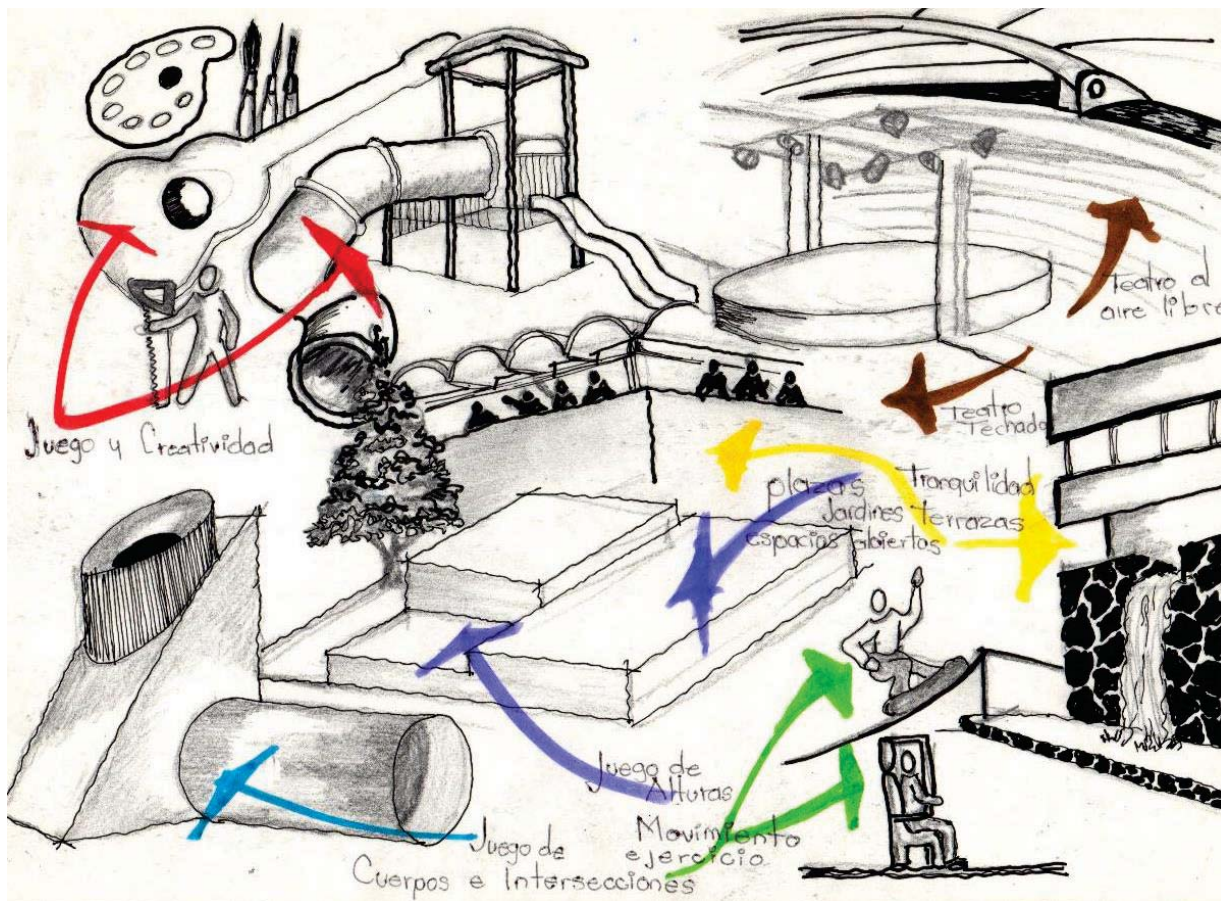 Teatro al
aire libre
Teatro
Techado
Juego y Creatividad
Tranquilidad
plazas
Jardines terrazas
espacios abiertos
Juego de
Alturas
Movimiento
ejercicio
Juego de
Cuerpos e Intersecciones